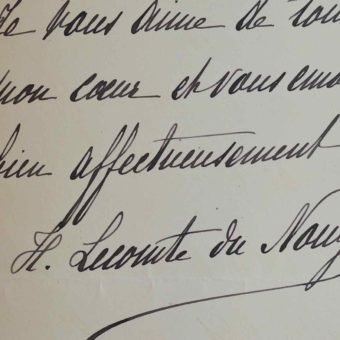 Je vous aime de tou
mon cœur et vous em
bien affectueusement
H. Lecomte du Nouÿ